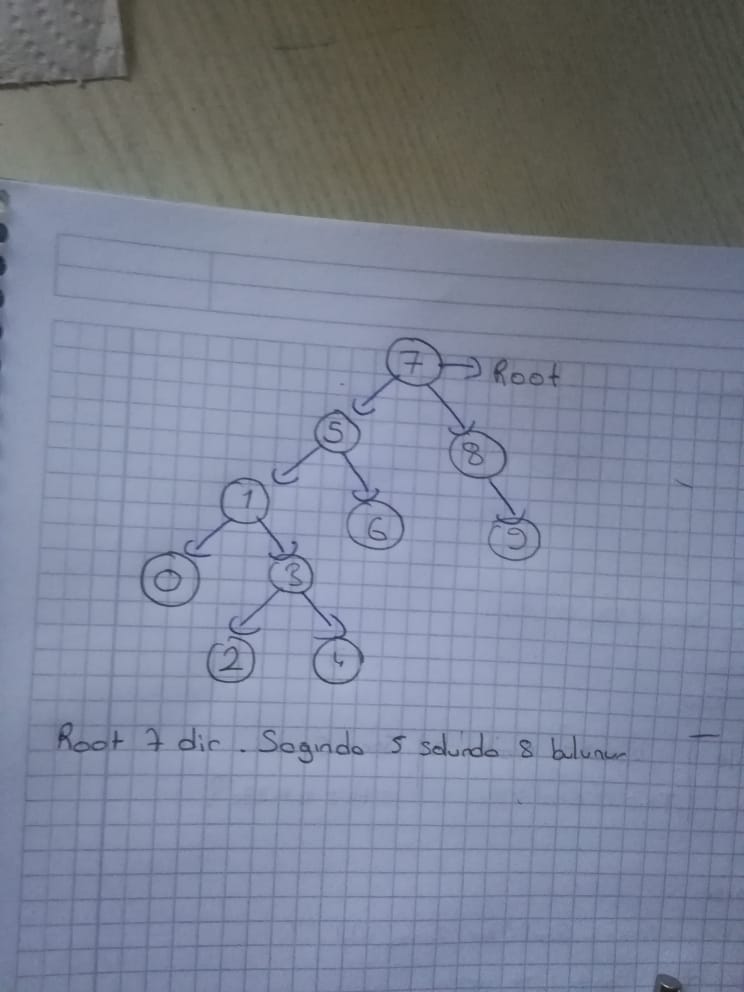 7 Root
5 8
1 6 9
0 3
2 4
Root 7 dir. Sagında 5 solunda 8 bulunur